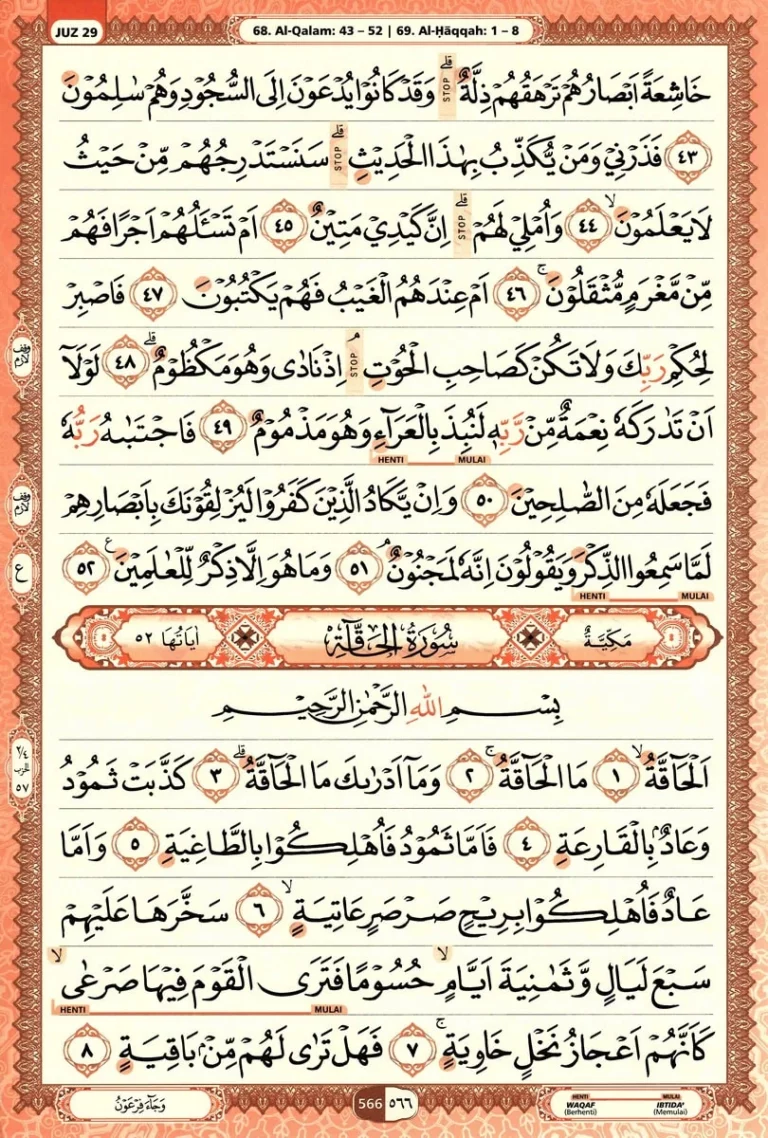 JUZ 29
68. Al-Qalam: 43 – 52 | 69. Al-Ḥāqqah: 1 – 8
خَاشِعَةً اَبْصَارُهُمْ تَرْهَقُهُمْ ذِلَّةٌ ۗ STOP وَقَدْ كَانُوْا يُدْعَوْنَ اِلَى السُّجُوْدِ وَهُمْ سٰلِمُوْنَ
٤٣ فَذَرْنِيْ وَمَنْ يُّكَذِّبُ بِهٰذَا الْحَدِيْثِۗ STOP سَنَسْتَدْرِجُهُمْ مِّنْ حَيْثُ
لَا يَعْلَمُوْنَۙ ٤٤ وَاُمْلِيْ لَهُمْۗ STOP اِنَّ كَيْدِيْ مَتِيْنٌ ٤٥ اَمْ تَسْـَٔلُهُمْ اَجْرًا فَهُمْ
مِّنْ مَّغْرَمٍ مُّثْقَلُوْنَۚ ٤٦ اَمْ عِنْدَهُمُ الْغَيْبُ فَهُمْ يَكْتُبُوْنَ ٤٧ فَاصْبِرْ
لِحُكْمِ رَبِّكَ وَلَا تَكُنْ كَصَاحِبِ الْحُوْتِۘ STOP اِذْ نَادٰى وَهُوَ مَكْظُوْمٌۗ ٤٨ لَوْلَآ
اَنْ تَدٰرَكَهٗ نِعْمَةٌ مِّنْ رَّبِّهٖ لَنُبِذَ بِالْعَرَاۤءِ وَهُوَ مَذْمُوْمٌ ٤٩ فَاجْتَبٰىهُ رَبُّهٗ
HENTI MULAI
فَجَعَلَهٗ مِنَ الصّٰلِحِيْنَ ٥٠ وَاِنْ يَّكَادُ الَّذِيْنَ كَفَرُوْا لَيُزْلِقُوْنَكَ بِاَبْصَارِهِمْ
لَمَّا سَمِعُوا الذِّكْرَ وَيَقُوْلُوْنَ اِنَّهٗ لَمَجْنُوْنٌۘ ٥١ وَمَا هُوَ اِلَّا ذِكْرٌ لِّلْعٰلَمِيْنَ ࣖ ٥٢
HENTI MULAI
مَكِّيَّةٌ سُوْرَةُ الْحَاۤقَّةِ اٰيَاتُهَا ٥٢
بِسْمِ اللّٰهِ الرَّحْمٰنِ الرَّحِيْمِ
اَلْحَاۤقَّةُۙ ١ مَا الْحَاۤقَّةُۚ ٢ وَمَآ اَدْرٰىكَ مَا الْحَاۤقَّةُۗ ٣ كَذَّبَتْ ثَمُوْدُ
وَعَادٌۢ بِالْقَارِعَةِ ٤ فَاَمَّا ثَمُوْدُ فَاُهْلِكُوْا بِالطَّاغِيَةِ ٥ وَاَمَّا
عَادٌ فَاُهْلِكُوْا بِرِيْحٍ صَرْصَرٍ عَاتِيَةٍۙ ٦ سَخَّرَهَا عَلَيْهِمْ
سَبْعَ لَيَالٍ وَّثَمٰنِيَةَ اَيَّامٍۙ حُسُوْمًا فَتَرَى الْقَوْمَ فِيْهَا صَرْعٰىۙ
HENTI MULAI
كَاَنَّهُمْ اَعْجَازُ نَخْلٍ خَاوِيَةٍۚ ٧ فَهَلْ تَرٰى لَهُمْ مِّنْۢ بَاقِيَةٍ ٨
وقف لازم
وقف لازم
ع
٢/٤ الحزب ٥٧
وَجَاۤءَ فِرْعَوْنُ
566 ٥٦٦
HENTI MULAI
WAQAF IBTIDA'
(Berhenti) (Memulai)